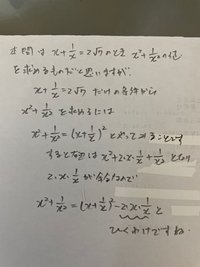 本問は x+1/x=2√7 のとき x²+1/x² の値
を求めるものだと思いますが、
x+1/x=2√7 だけの条件から
x²+1/x² を求めるには
x²+1/x²=(x+1/x)² と
すると右辺は x²+2·x·1/x+1/x² となり
2·x·1/x が
x²+1/x²=(x+1/x)²-2·x·1/x と
ひくわけですね。